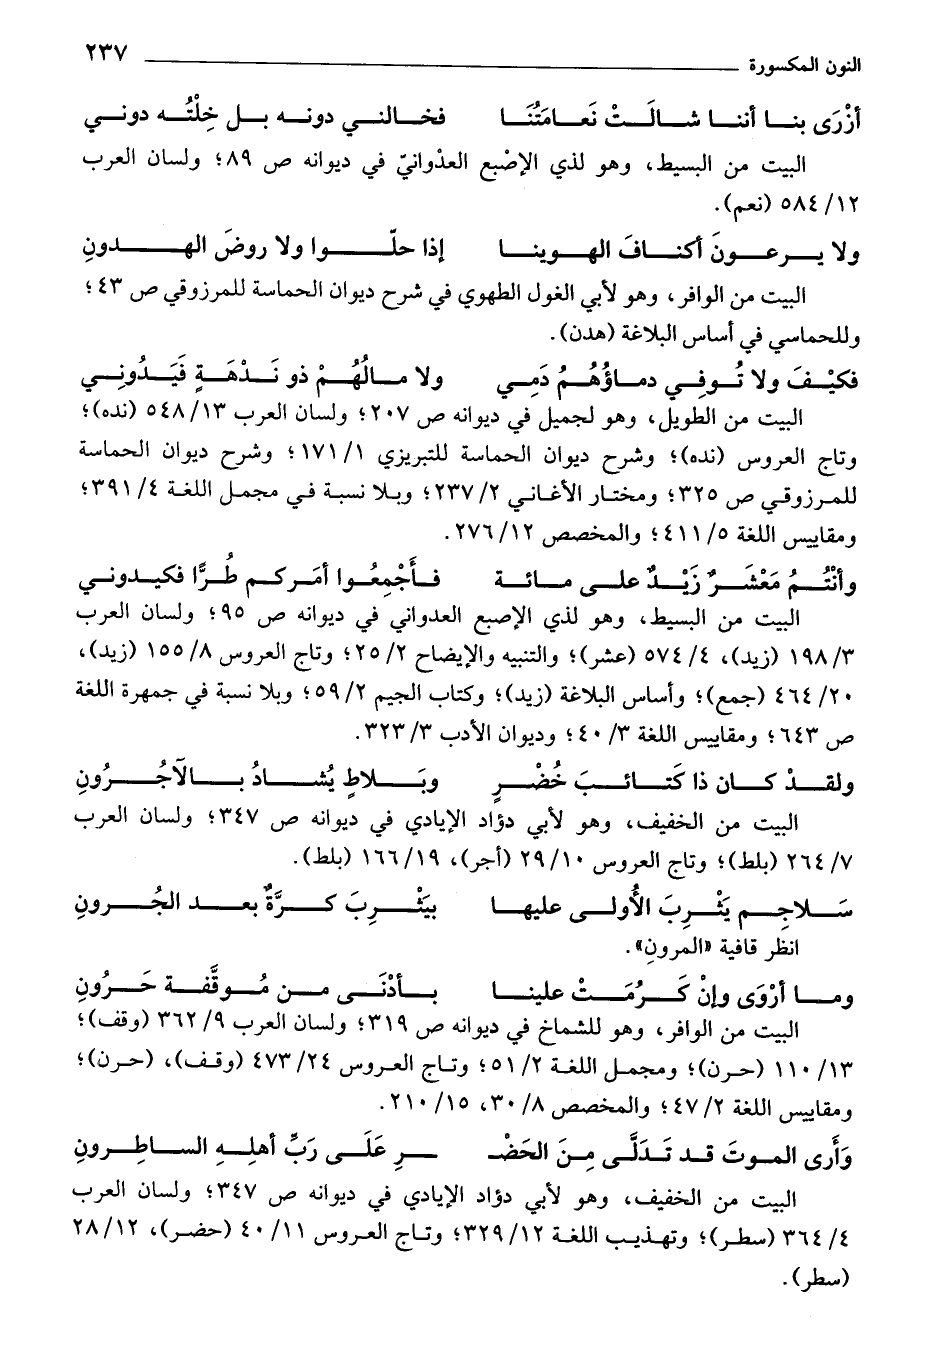 النون المكسورة ٢٣٧
أزْرَى بنــا أننــا شــالَــتْ نَعــامَتُنَــا فخــالنــي دونــه بــل خِلْتُــه دونــي
البيت من البسيط، وهو لذي الإصْبع العدْوانيّ في ديوانه ص ٨٩؛ ولسان العرب
١٢/ ٥٨٤ (نعم).
ولا يــرعــونَ أكنــافَ الهــوينــا إذا حلّــوا ولا روضَ الهــدونِ
البيت من الوافر، وهو لأبي الغول الطهوي في شرح ديوان الحماسة للمرزوقي ص ٤٣؛
وللحماسي في أساس البلاغة (هدن).
فكيْــفَ ولا تُــوفــي دمــاؤُهُــمُ دَمِــي ولا مــالُهُــمْ ذو نَــدْهَــةٍ فَيَــدُونِــي
البيت من الطويل، وهو لجميل في ديوانه ص ٢٠٧؛ ولسان العرب ١٣/ ٥٤٨ (نده)؛
وتاج العروس (نده)؛ وشرح ديوان الحماسة للتبريزي ١/ ١٧١؛ وشرح ديوان الحماسة
للمرزوقي ص ٣٢٥؛ ومختار الأغاني ٢/ ٢٣٧؛ وبلا نسبة في مجمل اللغة ٤/ ٣٩١؛
ومقاييس اللغة ٥/ ٤١١؛ والمخصص ١٢/ ٢٧٦.
وأنْتُــمُ مَعْشَــرٌ زَيْــدٌ علــى مــائــة فــأَجْمِعُــوا أمَــركــم طُــرًّا فكيــدونــي
البيت من البسيط، وهو لذي الإصبع العدواني في ديوانه ص ٩٥؛ ولسان العرب
٣/ ١٩٨ (زيد)، ٤/ ٥٧٤ (عشر)؛ والتنبيه والإيضاح ٢/ ٢٥؛ وتاج العروس ٨/ ١٥٥ (زيد)،
٢٠/ ٤٦٤ (جمع)؛ وأساس البلاغة (زيد)؛ وكتاب الجيم ٢/ ٥٩؛ وبلا نسبة في جمهرة اللغة
ص ٦٤٣؛ ومقاييس اللغة ٣/ ٤٠؛ وديوان الأدب ٣/ ٣٢٣.
ولقــدْ كــان ذا كَتــائــبَ خُضْــرٍ وبَــلاطٍ يُشــادُ بــالآجُــرُونِ
البيت من الخفيف، وهو لأبي دؤاد الإيادي في ديوانه ص ٣٤٧؛ ولسان العرب
٧/ ٢٦٤ (بلط)؛ وتاج العروس ١٠/ ٢٩ (أجر)، ١٩/ ١٦٦ (بلط).
سَــلاجِــم يَثْــرِبَ الأُولــى عليهــا بيَثْــرِبَ كَــرَّةٌ بعــد الجُــرونِ
انظر قافية «المرونِ».
ومــا أرْوَى وإنْ كَــرُمَــتْ علينــا بــأدْنَــى مــن مُــوقَّفــة حَــرُونِ
البيت من الوافر، وهو للشماخ في ديوانه ص ٣١٩؛ ولسان العرب ٩/ ٣٦٢ (وقف)؛
١٣/ ١١٠ (حرن)؛ ومجمل اللغة ٢/ ٥١؛ وتاج العروس ٢٤/ ٤٧٣ (وقف)، (حرن)؛
ومقاييس اللغة ٢/ ٤٧؛ والمخصص ٨/ ٣٠، ١٥/ ٢١٠.
وَأرى المــوتَ قــد تَــدَلَّــى مِــنَ الحَضْــ ــرِ عَلَــى رَبِّ أهلِــهِ الســاطِــرونِ
البيت من الخفيف، وهو لأبي دؤاد الإيادي في ديوانه ص ٣٤٧؛ ولسان العرب
٤/ ٣٦٤ (سطر)؛ وتهذيب اللغة ١٢/ ٣٢٩؛ وتاج العروس ١١/ ٤٠ (حضر)، ١٢/ ٢٨
(سطر).